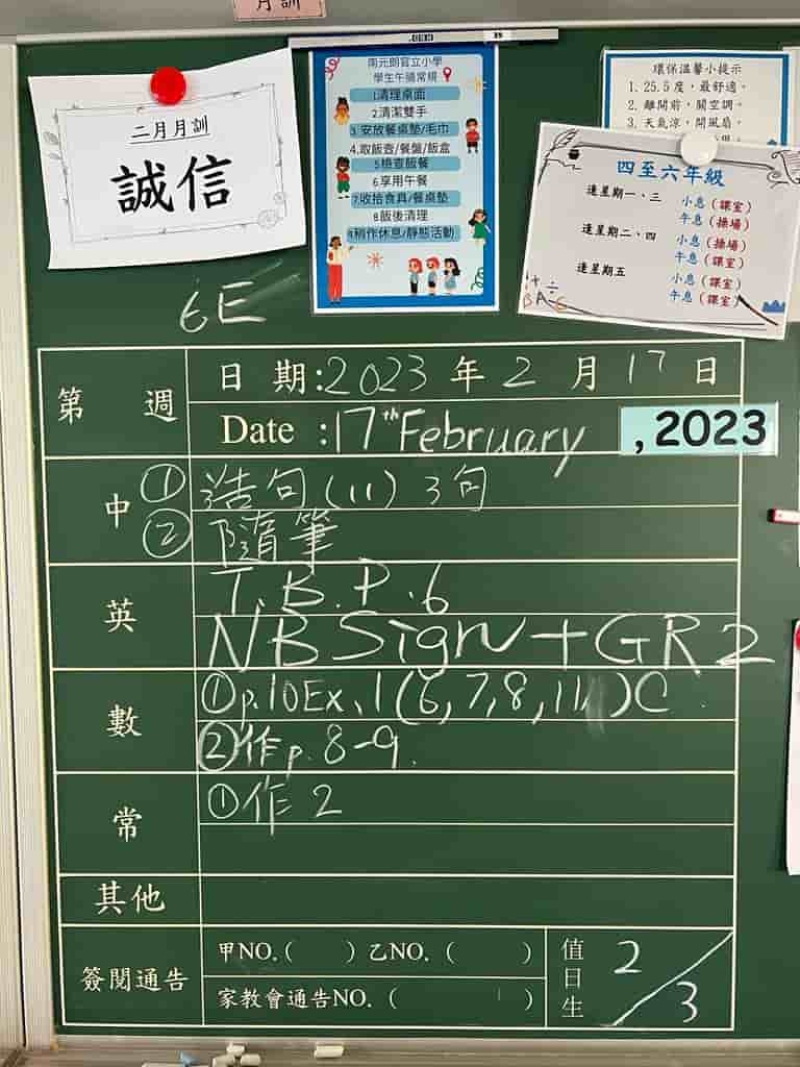 月訓
二月月訓
誠信
南元朗官立小學
學生午膳常規
1.清理桌面
2.清潔雙手
3.安放餐桌墊/毛巾
4.取飯壺/餐盤/飯盒
5檢查飯餐
6.享用午餐
7.收拾食具/餐桌墊
8飯後清理
9稍作休息/靜態活動
環保溫馨小提示
1. 25.5度，最舒適。
2. 離開前，關空調。
3. 天氣涼，開風扇。
四至六年級
逢星期一、三 小息（課室）
午息（操場）
逢星期二、四 小息（操場）
午息（課室）
逢星期五 小息（課室）
午息（課室）
6E
第 週
日 期:2023 年 2 月 17 日
Date :17th February ,2023
中 ① 造句(11) 3句
② 隨筆
英 T.B.P.6
NB Sign+GR2
數 ①p.10Ex.1(6,7,8,11)C.
②作p.8-9.
常 ①作2
其他
簽閱通告 甲NO.( ) 乙NO.( )
家教會通告NO.( )
值日生 2/3